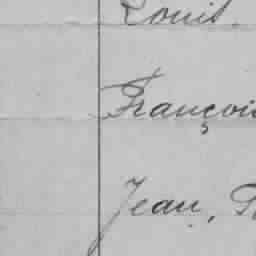 Louis.
François
Jean,